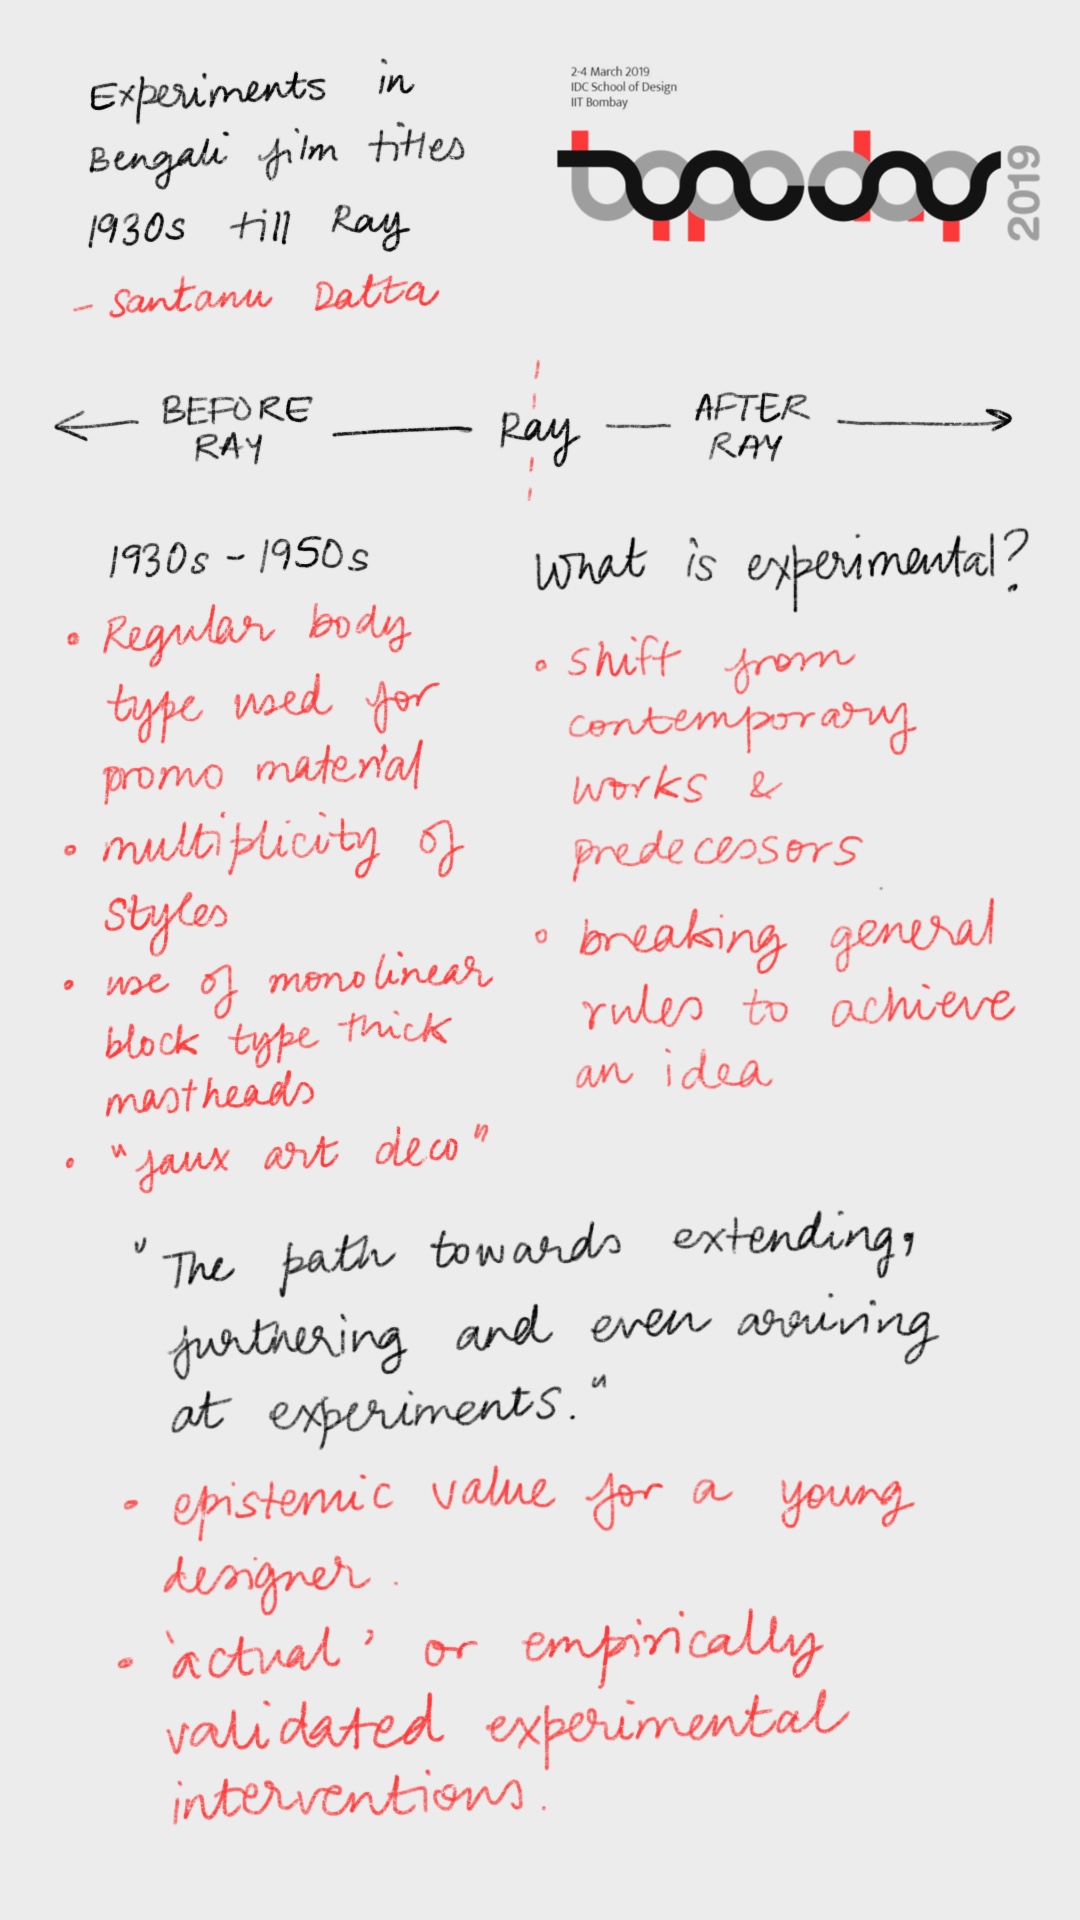 Experiments in
Bengali film titles
1930s till Ray
- Santanu Datta
2-4 March 2019
IDC School of Design
IIT Bombay
typoday
2019
BEFORE
RAY
Ray
AFTER
RAY
1930s - 1950s
• Regular body
type used for
promo material
• multiplicity of
styles
• use of monolinear
block type thick
mastheads
• "faux art deco"
What is experimental?
• shift from
contemporary
works &
predecessors
• breaking general
rules to achieve
an idea
"The path towards extending,
furthering and even arriving
at experiments."
• epistemic value for a young
designer.
• 'actual' or empirically
validated experimental
interventions.